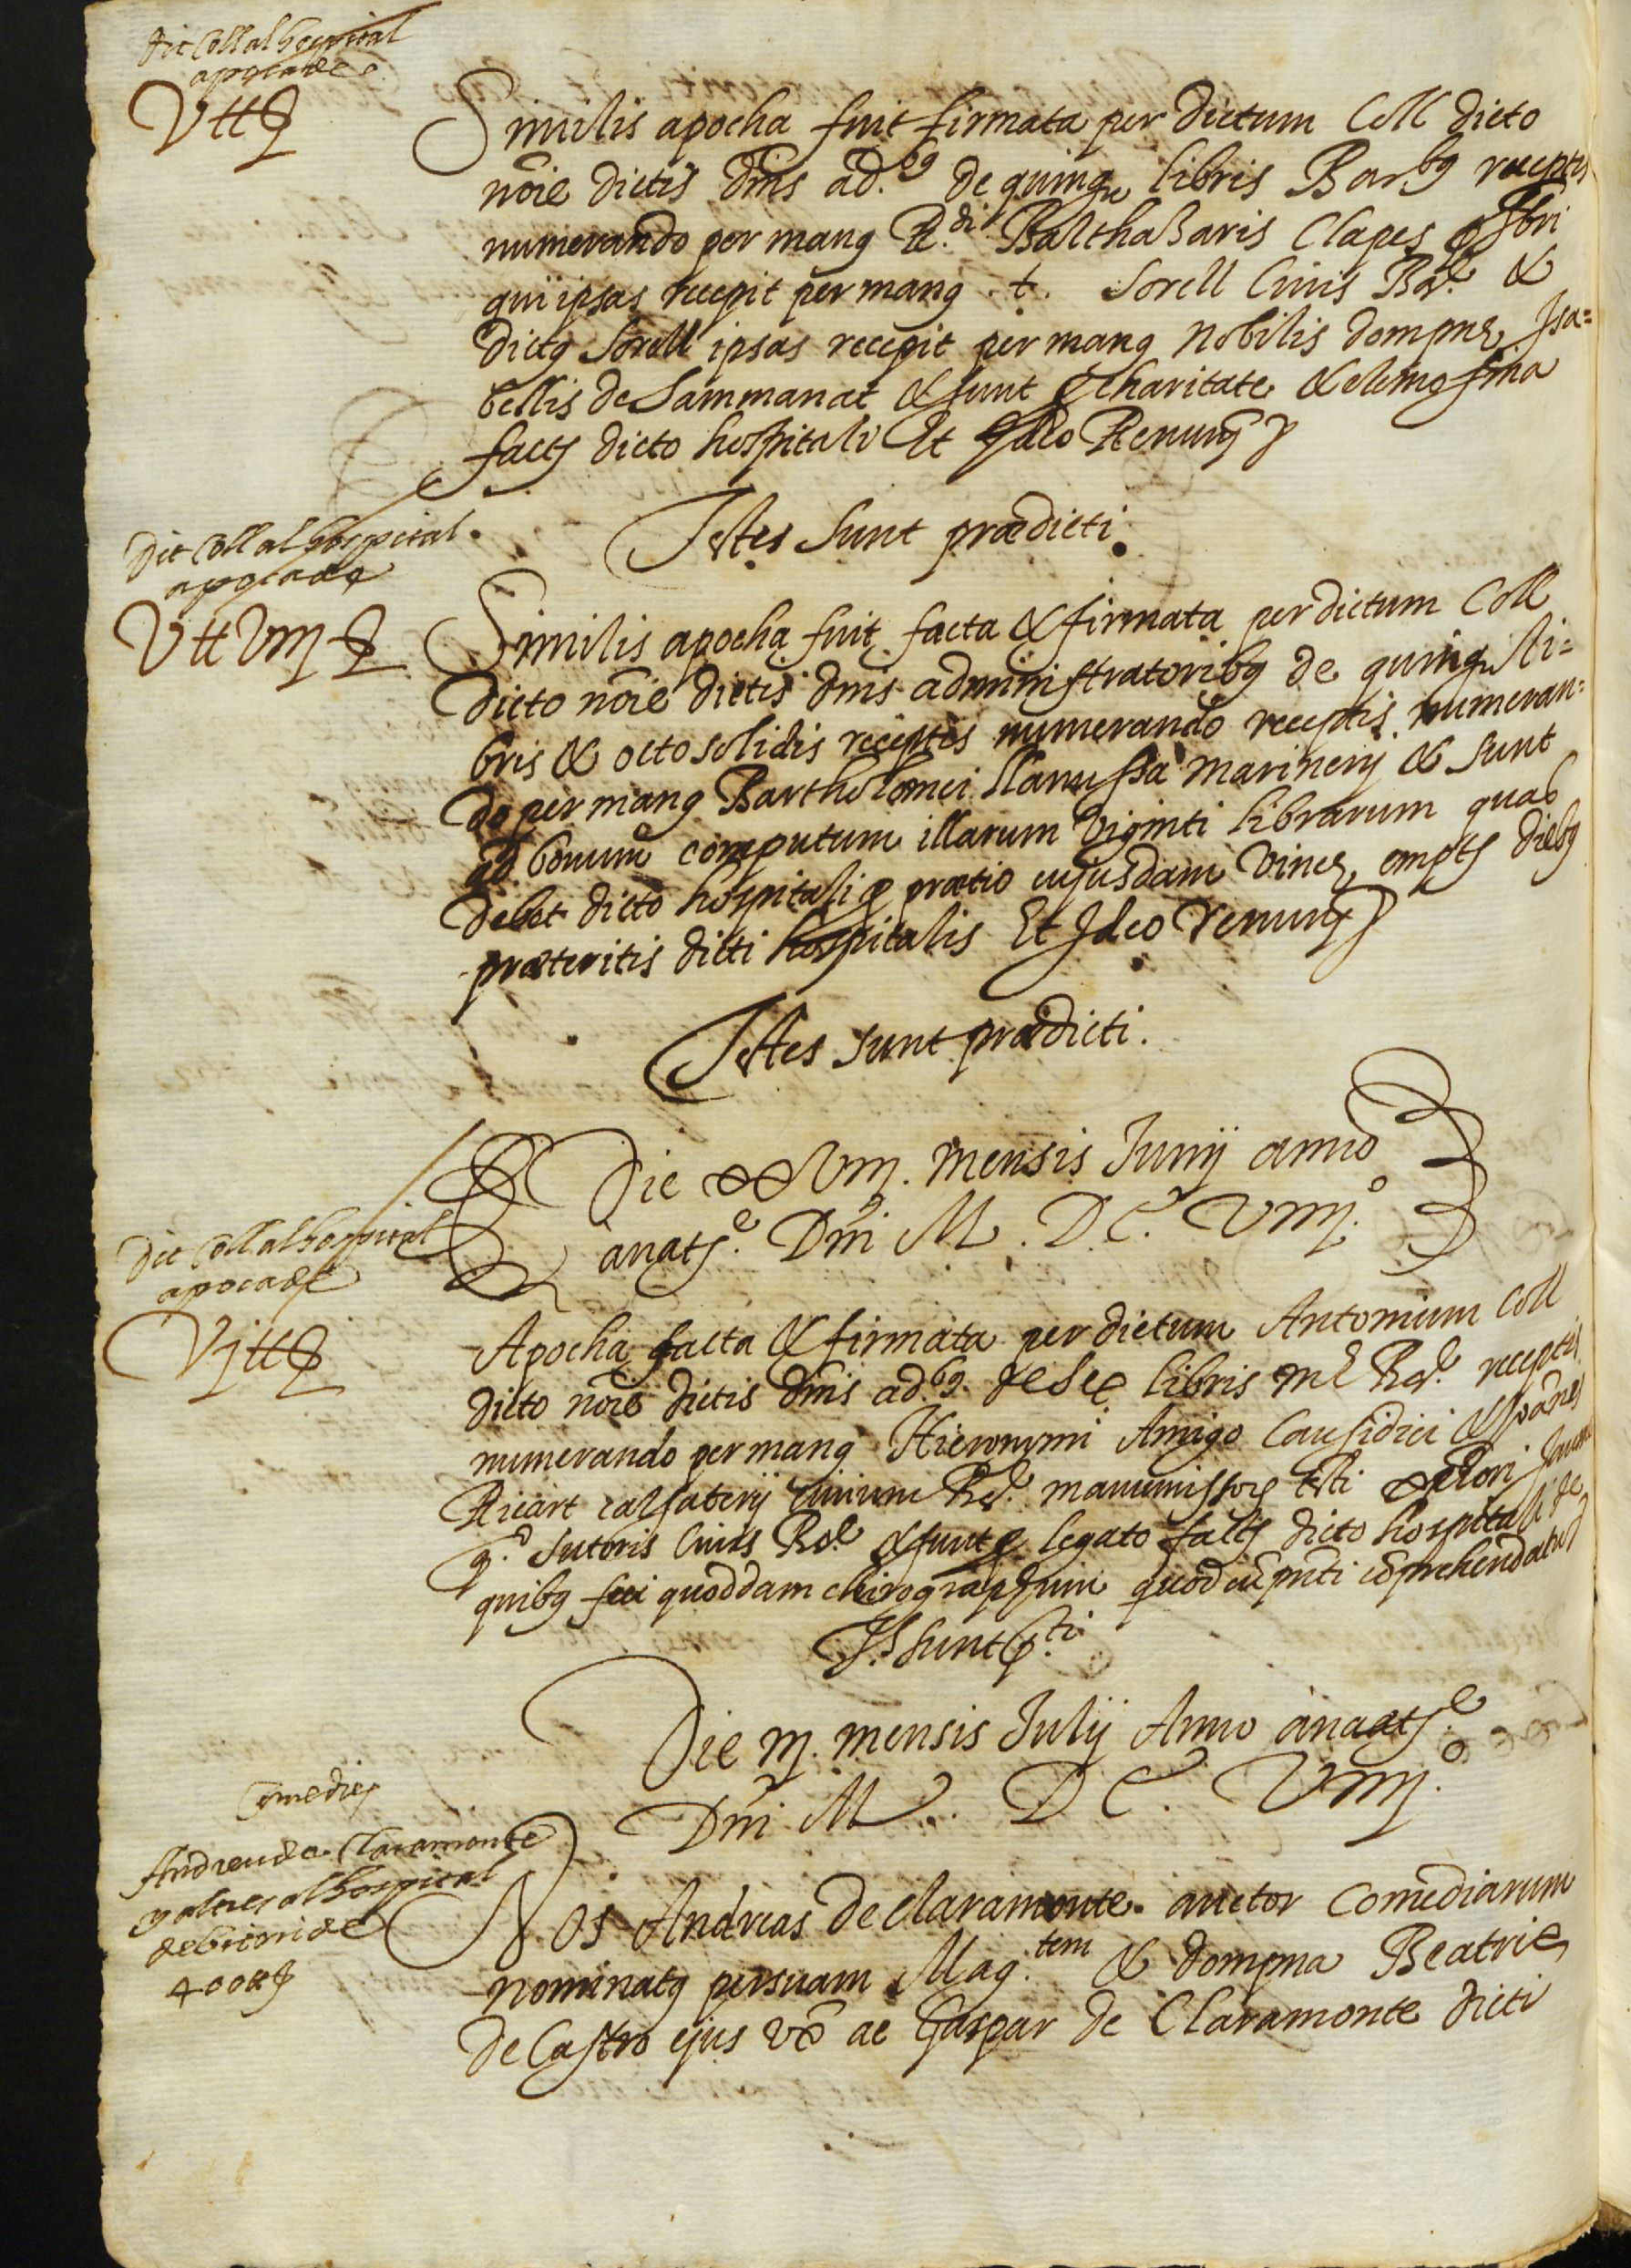 Dit Coll al hospital
apoca de
V tt ß
Similis apocha fuit firmata per dictum Coll dicto
nōie dictis dnīs ad.bȝ de quinqȝ libris Barbȝ receptis
numerando per manȝ R.di Balthasaris Clapes pƀri
qui ipsas recepit per manȝ t. Sorell Ciuis Bar.e &
dictȝ Sorell ipsas recepit per manȝ Nobilis dompnę Isa=
bellis de Sammanat & sunt ꝓ charitate & elemosina
factȝ dicto hospitali Et Ideo Renunȝ
Testes sunt prædicti.
Dit Coll al hospital
apoca de
V tt VIII ß
Similis apocha fuit facta & firmata per dictum Coll
dicto nōie dictis dnīs administratoribȝ de quinqȝ li=
bris & octo solidis receptis numerando receptis numeran=
do per manȝ Bartholomei llanussa marinerij & sunt
ad bonum computum illarum viginti librarum quas
debet dicto hospitali ꝓ prætio cujusdam vineę emptȝ diebȝ
præteritis dicti hospitalis Et Ideo renunȝ
Testes sunt prædicti.
Die XXVIII. mensis Junij anno
a natȝ.e Dnī M. D C. VIIII.o
Dit Coll al hospital
apoca de
VI tt ß
Apocha facta & firmata per dictum Antonium Coll
dicto nōie dictis dnīs ad.bȝ de sex libris mē Bar.e receptis
numerando per manȝ Hieronymi Amigo Causidici & Joānes
Ricart calsaterij ciuium Bar.e manumissorȝ testi
q.o sutoris Ciuis Bar.e & sunt ꝓ legato factȝ dicto hospitali de
quibȝ feci quoddam chirographum quod cū pn̄ti cōprehendatur
Tȝ sunt p.ti
Die III. mensis Julij Anno a natȝ.e
Dnī M. D C. VIIII.o
Comedies
Andreu de Claramonte
y altres al hospital
debitori de
400 tt ß
Nos Andreas de Claramonte auctor Comediarum
nominatȝ per suam Mag.tem & dompna Beatris
de Castro ejus vx̄ ac Gaspar de Claramonte dicti